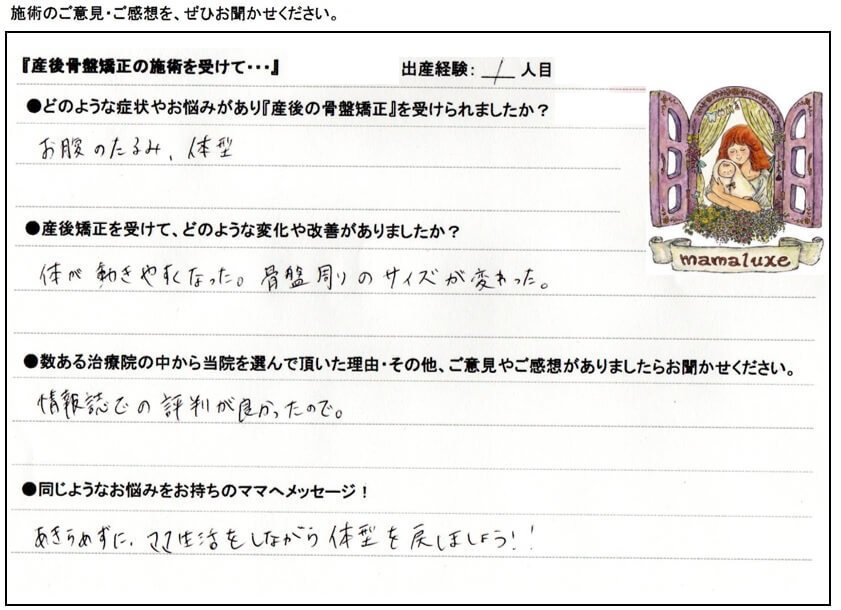 施術のご意見・ご感想を、ぜひお聞かせください。
『産後骨盤矯正の施術を受けて・・・』 出産経験: 1 人目
●どのような症状やお悩みがあり『産後の骨盤矯正』を受けられましたか？
お腹のたるみ、体型
●産後矯正を受けて、どのような変化や改善がありましたか？
体が動きやすくなった。骨盤周りのサイズが変わった。
mamaluxe
●数ある治療院の中から当院を選んで頂いた理由・その他、ご意見やご感想がありましたらお聞かせください。
情報誌での評判が良かったので。
●同じようなお悩みをお持ちのママへメッセージ！
あきらめずに、ママ生活をしながら体型を戻しましょう！！